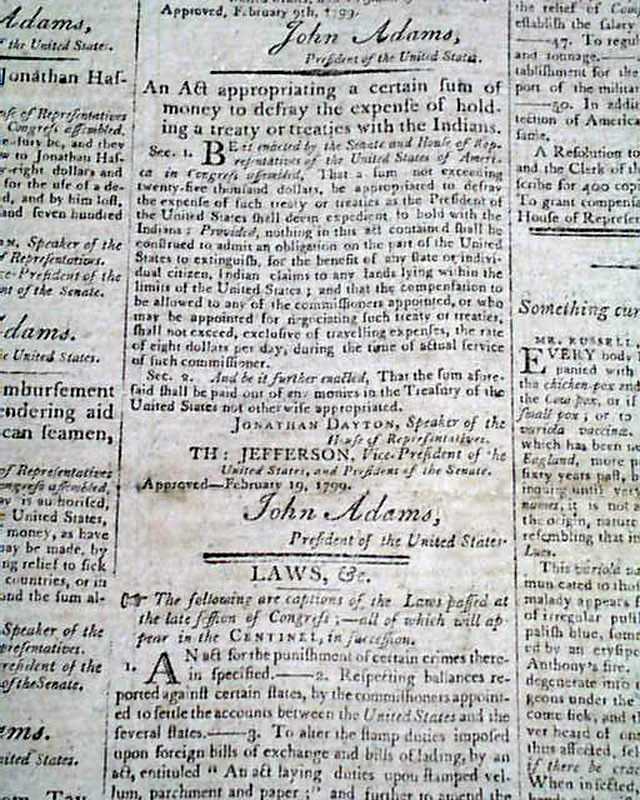 Adams,
the United States.
Jonathan Haſ-
ſe of Repreſentatives
Congreſs aſſembled,
and they
to Jonathan Haſ-
eight dollars and
for the uſe of a de-
and by him loſt,
and ſeven hundred
Speaker of the
Repreſentatives.
ce-Preſident of the
nt of the Senate.
dams.
e United States.
mburſement
endering aid
can ſeamen,
of Repreſentatives
ongreſs aſſembled,
ay is authoriſed,
United States,
money, as have
may be made, by
ng relief to ſick
countries, or in
and the ſum al-
Speaker of the
preſentatives.
reſident of the
of the Senate.
ms.
nited States.
Approved, February 9th, 1799.
John Adams,
Preſident of the United States.
An Act appropriating a certain ſum of
money to defray the expenſe of hold-
ing a treaty or treaties with the Indians.
Sec. 1. BE it enacted by the Senate and Houſe of Rep-
reſentatives of the United States of Ameri-
ca in Congreſs aſſembled, That a ſum not exceeding
twenty-five thouſand dollars, be appropriated to defray
the expenſe of ſuch treaty or treaties as the Preſident of
the United States ſhall deem expedient to hold with the
Indians: Provided, nothing in this act contained ſhall be
conſtrued to admit an obligation on the part of the United
States to extinguiſh, for the benefit of any ſtate or indivi-
dual citizen, Indian claims to any lands lying within the
limits of the United States; and that the compenſation to
be allowed to any of the commiſſioners appointed, or who
may be appointed for negociating ſuch treaty or treaties,
ſhall not exceed, excluſive of travelling expenſes, the rate
of eight dollars per day, during the time of actual ſervice
of ſuch commiſſioner.
Sec. 2. And be it further enacted, That the ſum afore-
ſaid ſhall be paid out of any monies in the Treaſury of the
United States not otherwiſe appropriated.
JONATHAN DAYTON, Speaker of the
Houſe of Repreſentatives.
TH: JEFFERSON, Vice-Preſident of the
United States, and Preſident of the Senate.
Approved—February 19, 1799.
John Adams,
Preſident of the United States.
LAWS, &c.
☞ The following are captions of the Laws paſſed at
the late ſeſſion of Congreſs;—all of which will ap-
pear in the CENTINEL, in ſucceſſion.
1. AN act for the puniſhment of certain crimes there-
in ſpecified.——2. Reſpecting ballances re-
ported againſt certain ſtates, by the commiſſioners appoint-
ed to ſettle the accounts between the United States and the
ſeveral ſtates.——3. To alter the ſtamp duties impoſed
upon foreign bills of exchange and bills of lading, by an
act, entituled "An act laying duties upon ſtamped vel-
lum, parchment and paper;" and further to amend the
the relief of
eſtabliſh the ſalary
——47. To regul
and tonnage.——
tabliſhment for the
port of the militar
——50. In addi
tection of America
ſame.
A Reſolution to
and the Clerk of th
ſcribe for 400 cop
To grant compenſa
Houſe of Repreſe
Something cur
MR. RUSSELL
EVERY body
panted with
the chicken-pox an
the Cow-pox, or if
ſmall pox; or to
variola vaccinæ.
which has been
England, more
ſixty years paſt, b
inquiry until very
names, it is not a
the origin, nature
reſembling that in
Lues.
This variola
mun cated to tha
malady appears
of irregular puſt
paliſh blue, ſome
ed by an eryſipe
Anthony's fire.
degenerate into
geons under the
come ſick, and
ver heard of
thus affected, ſel
if there be crac
When infected